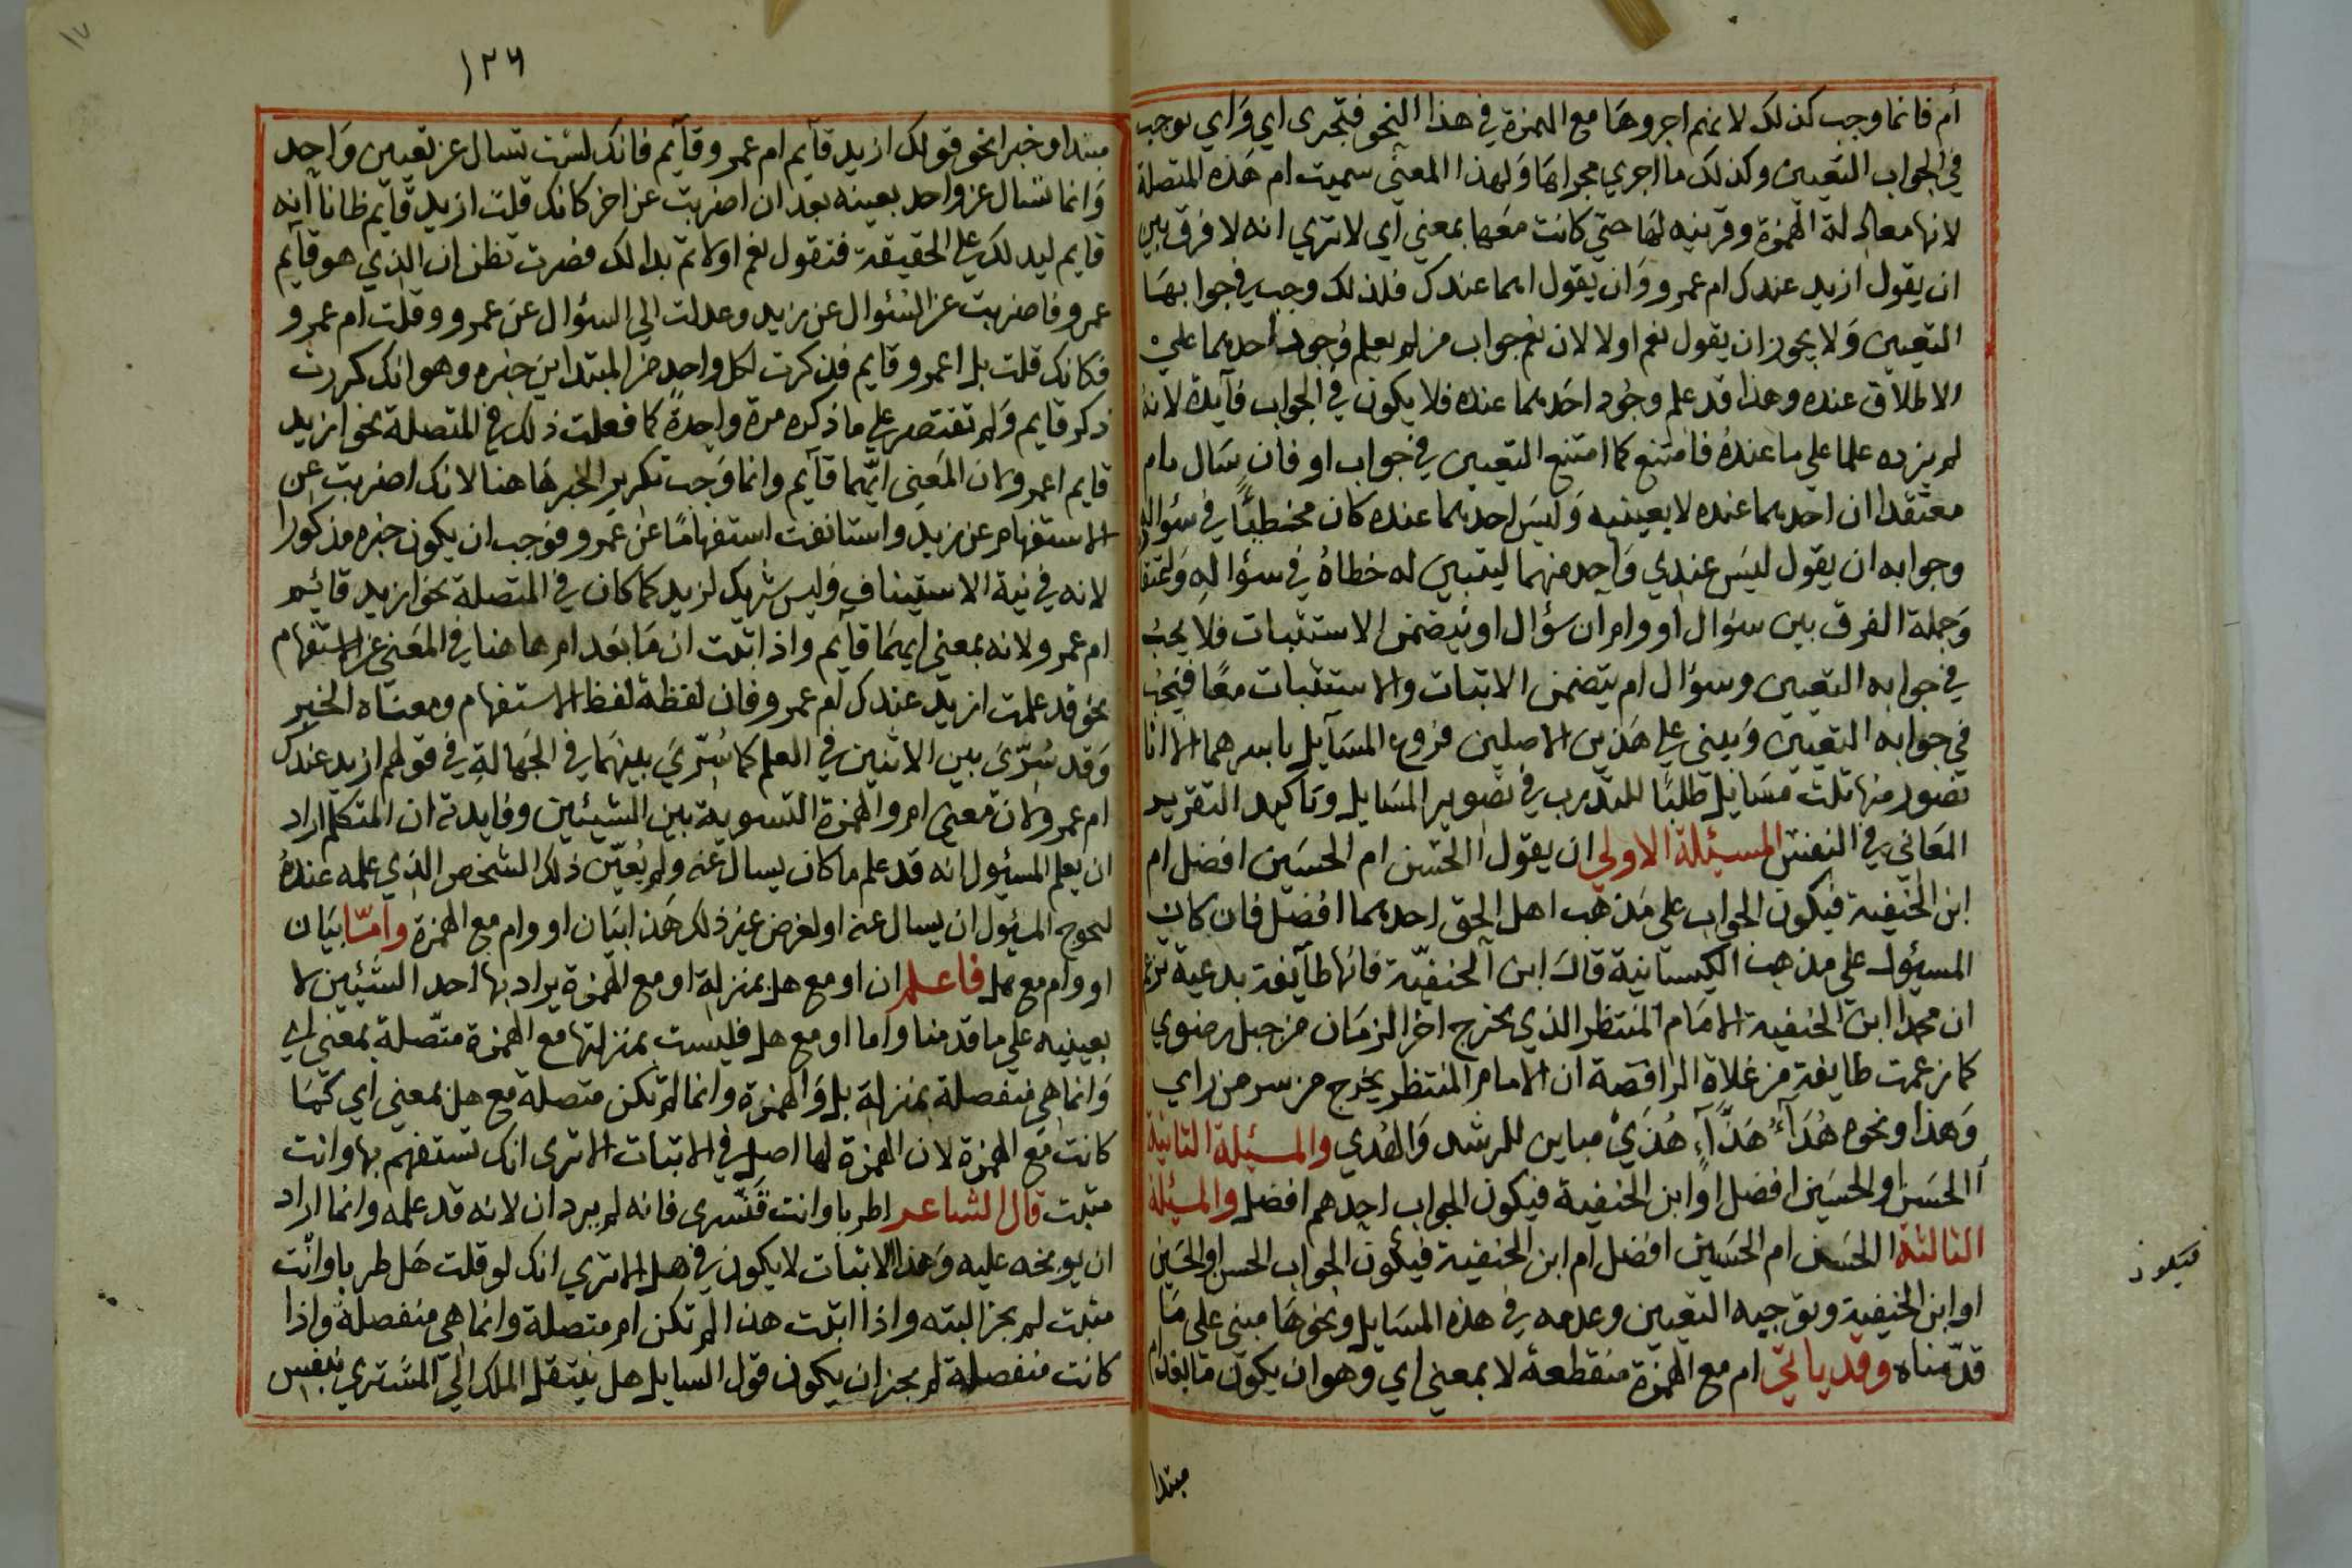 أم فانما وجب كذلك لانهم اجروها مع الهمزة في هذا النحو فتجرى اي وَاي يوجب
في الجواب التعيين وكذلك ما اجري مجراها وَلهذا المعنى سميت ام هَذه المتصلة
لانها معادلة الهمزة وقرينه لها حتى كانت معها بمعني اي لا تري انه لا فرق بين
ان يقول ازيد عندك ام عمرو وَان يقول ايهما عندك فلذلك وجب في جوابهَا
التعيين وَلا يجوز ان يقول نعم او لا لان نعم جواب من لم يعلم وُجود احديهما علي
الاطلاق عنده وهذا قد علم وجُود احَديهما عنده فلا يكون في الجواب فآيدة لانه
لم يزده علما علي ما عندهُ فامتنع كما امتنع التعيين في جواب او فان سَال بام
معتقدا ان احديهما عنده لا بعينيه وَليسَ احديهما عنده كان مخطئًا في سئواله
وجوابه ان يقول ليسَ عندي وَاحِد منهما ليتبين له خطاهُ في سؤاله
وَجملة الفرق بين سؤال او وام ان سؤال او يتضمن الاستثبات فلا يجب
في جوابه التعيين وسؤال ام يتضمن الاثبات والاستثبات معًا فيجب
في جوابه التعيين وَيبني علي هَذين الاصلين فروع المسَآيل باسرهما الا انا
نصور منها ثلث مسَايل طلبًا للتدرب في تصوير المسَايل وتاكيد التقرير
المعَاني في النفس المسيئلة الاولي ان يقول االحسَن ام الحسَين افضل ام
ابن الحنفية فيكون الجواب على مذهب اهل الحق احديهما افضل فان كان
المسيئول على مذهب الكيسانية قال ابن الحنفيّة فانها طآيفة بدعية تزعم
ان محمدا ابن الحنفية الامَام المنتظر الذي يخرج اخر الزمَان من جبل رضوي
كما زعمت طايفة من غلاة الرافضة ان الامام المنتظر يخرج من سر من راي
وَهذا ونحوه هُذَآءُ هَذّآءِ هُذيْ مباين للرشد وَالهُدي والمسيئلة الثانية
أالحسَن او الحسَين افضل اوْ ابن الحنفية فيكون الجواب احدهم افضل والمسيئلة
الثالثة االحسَن ام الحسَين افضل ام ابن الحنفية فيكون الجواب الحسن او الحسَين
او ابن الحنفية وتوجيه التعيين وعدمه في هذه المسَايل ونحوهَا مبنى على مَا
قدّمناه وقد ياتيَ ام مع الهمزة منقطعة لا بمعني اي وهو ان يكون ما بعد ام
فيكون
مبتدا
١٢٦
١٧
مبتدا وخبرا نحو قولك ازيد قآيم ام عمرو قآيم فانك لسْت تسال عن تعيين وَاحد
وَانما تسال عن واحد بعينه بعد ان اضربت عن اخر كانك قلت ازيد قآيم ظانا انه
قايم ليدلك علي الحقيقة فتقول نعم او لا ثم بدا لك فصرت تظن ان الذي هو قآيم
عمرو فاضربت عن السئوال عن زيد وعدلت الي السؤال عن عمرو وقلت ام عمرو
فكانك قلت بل اعمرو قايم فذكرت لكل واحد من المبتداين خبره وهو انك كررت
ذكر قايم وَلم تقتصر علي ما ذكره مرة واحِدةً كما فعلت ذلك في المتصلة نحو ازيد
قايم ام عمرو لان المَعنى ايّهما قآيم وانما وَجب تكرير الخبر هَاهنا لانك اضربت عن
الاستفهام عن زيد واستانفت استفهامًا عن عمرو فوجب ان يكون خبره مذكورا
لانه في نية الاستيناف وليس شريك لزيد كما كان في المتصلة نحو ازيد قائِم
ام عمرو لانه بمعني ايهمَا قآيم واذا ثبت ان مَا بعد ام هاهنا في المعَني عن الاستفهام
نحو قد علمت ازيد عندك ام عمرو فان لفظه لفظ الاستفهام ومعنَاه الخبر
وَقد سُوّىَ بين الاثنين في العلم كما سُوّيَ بينهمَا في الجَهالةِ في قولهم ازيد عندك
ام عمرو لان معنى ام والهمزة التسوية بين الشيئين وفايدته ان المتكلم اراد
ان يعلم المسيئول انه قد علم ما كان يسال عنه ولم يُعيّن ذلك الشخص الذي علمه عندهُ
ليحوج المسئول ان يسال عنه او لغرض غير ذلك هَذا بيَان او وام مع الهمزة وامّا بيَان
او وام مع هل فاعلم ان او مع هل بمنزلة او مع الهمزة يراد بها احد الشيئين لا
بعينيه علي ما قدمنا واما او مع هل فليست بمنزلتها مع الهمزة متّصلة بمعني اي
وَانما هي منفصلة بمنزلة بل وَالهمزة وانما لم تكن متصلة مع هل بمعني اي كمَا
كانت مَع الهمزة لان الهمزة لها اصل في الاثبات الا ترى انك تستفهم بها وانت
مثبت قال الشاعر اطربا وانت قنّسرى فانه لم يرد ان لانه قد علمه وانما اراد
ان يوبخه عليه وَهذا الاثبات لا يكون في هل الا تري انك لو قلت هَل طربا وانت
مثبت لم يجز البته واذا اثبت هذا لم تكن ام متصلة وانما هي منفصلة واذا
كانت منفصلة لم يجز ان يكون قول السايل هل ينتقل الملك الي المشتري بنفس